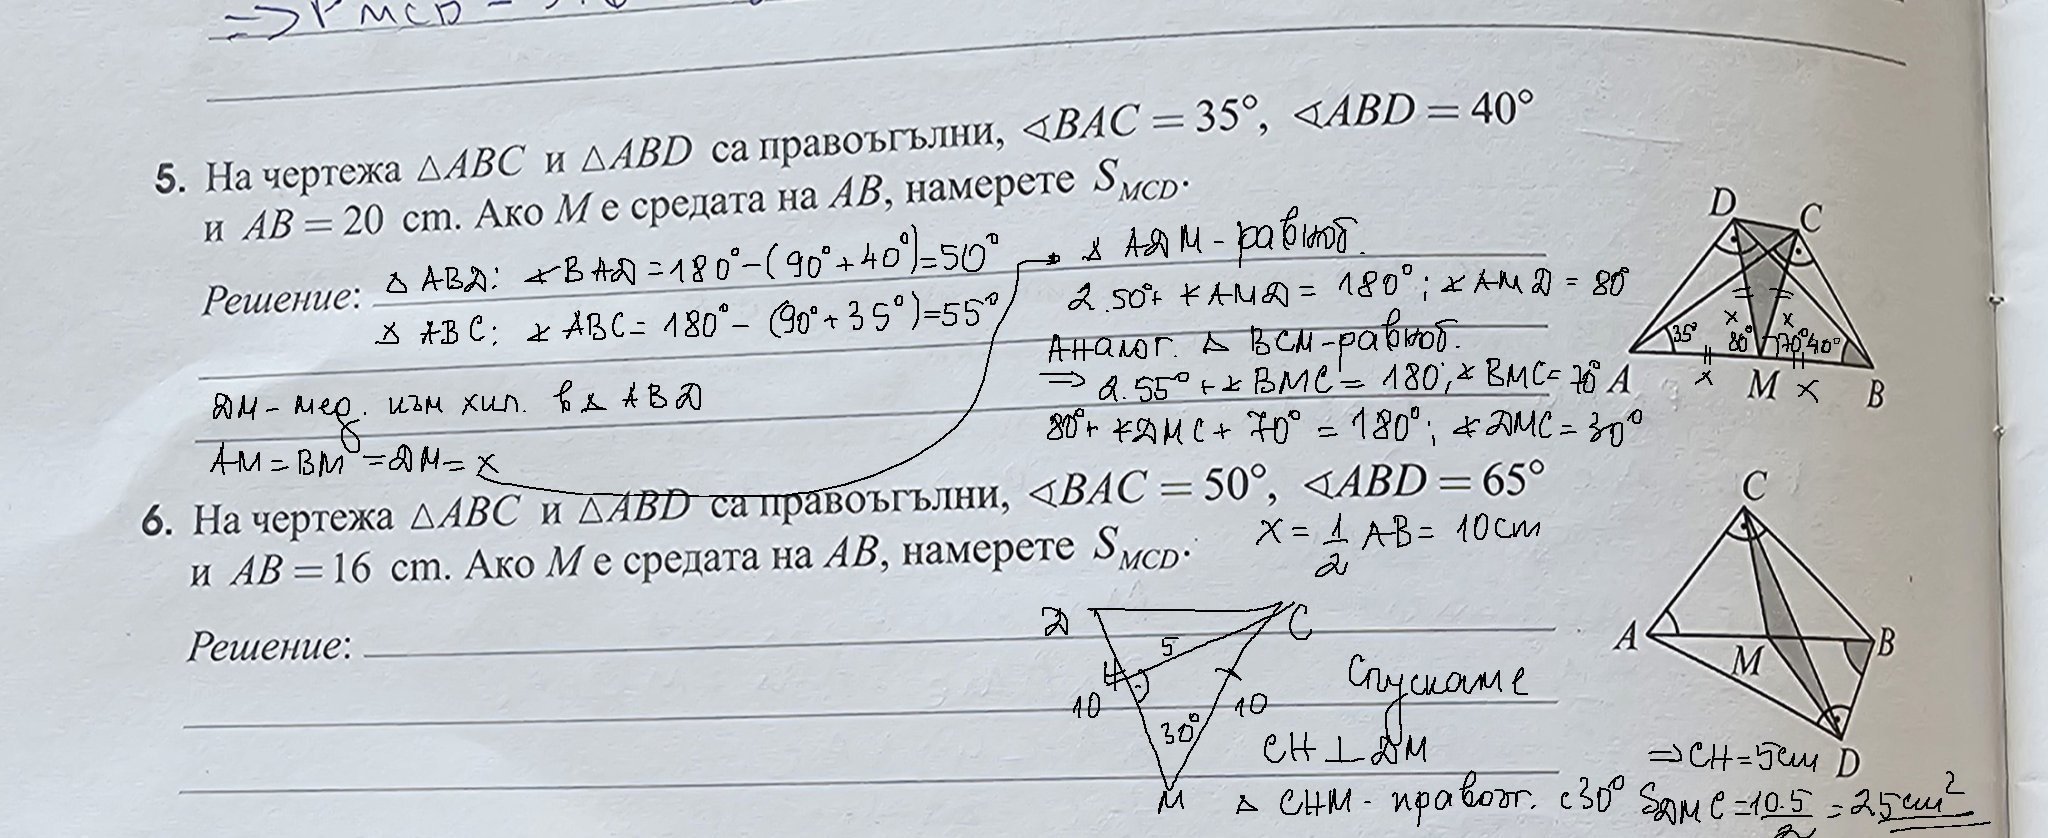 => P MCD =
5. На чертежа △ABC и △ABD са правоъгълни, ∢BAC = 35°, ∢ABD = 40°
и AB = 20 cm. Ако M е средата на AB, намерете S_MCD.
Решение: △ ABD: ∢BAD = 180° - (90° + 40°) = 50°
△ ABC: ∢ABC = 180° - (90° + 35°) = 55°
DM - мед. към хип. в △ ABD
AM = BM = DM = x
△ ADM - равноб.
2.50° + ∢AMD = 180°; ∢AMD = 80°
Аналог. △ BCM - равноб.
=> 2.55° + ∢BMC = 180; ∢BMC = 70°
80° + ∢DMC + 70° = 180°; ∢DMC = 30°
D C
35° 80° 70° 40°
x x
A M B
x x
6. На чертежа △ABC и △ABD са правоъгълни, ∢BAC = 50°, ∢ABD = 65°
и AB = 16 cm. Ако M е средата на AB, намерете S_MCD.
x = 1/2 AB = 10cm
Решение:
D C
5
H
10 10
30°
M
Спускаме
CH ⊥ DM
△ CHM - правоъг. с 30°
=> CH = 5cm
S DMC = 10.5/2 = 25cm²
C
A M B
D